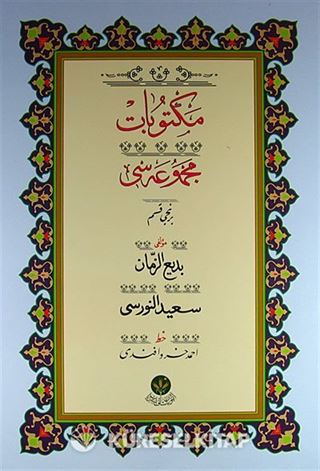 مكتوبات
مجموعه سى
برنجى قسم
مؤلفى
بديع الزمان
سعيد النورسى
خط
احمد خسرو افندى
KÜRESEL KİTAP